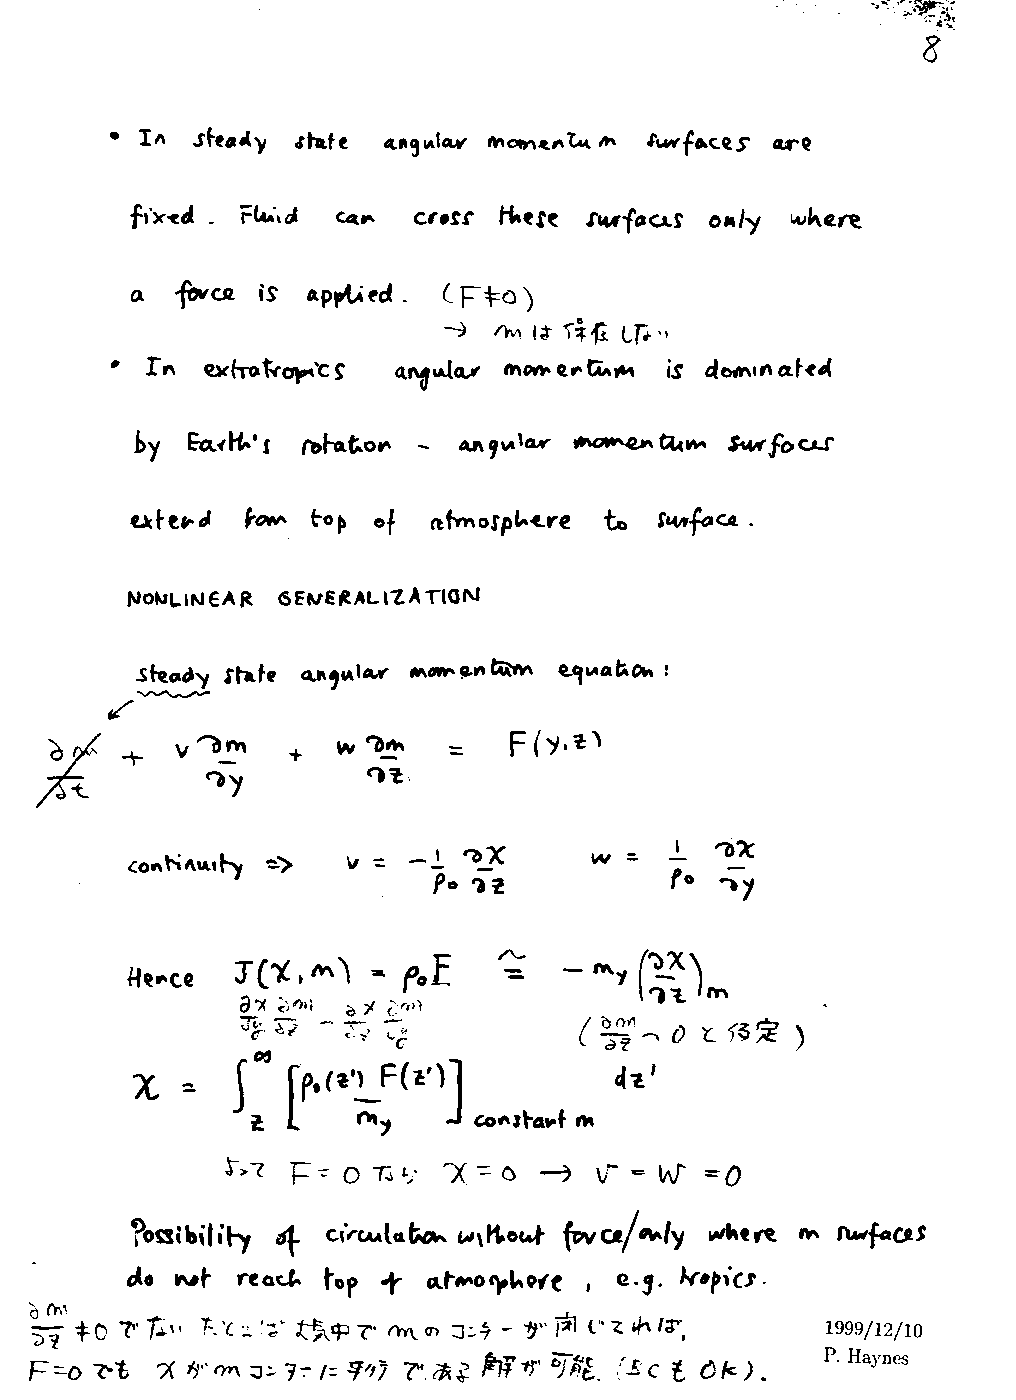 8
• In steady state angular momentum surfaces are
fixed. Fluid can cross these surfaces only where
a force is applied. (F≠0)
→ mは保存しない
• In extratropics angular momentum is dominated
by Earth's rotation - angular momentum surfaces
extend from top of atmosphere to surface.
NONLINEAR GENERALIZATION
steady state angular momentum equation:
∂m/∂t + v ∂m/∂y + w ∂m/∂z = F(y,z)
continuity => v = -1/ρ₀ ∂χ/∂z w = 1/ρ₀ ∂χ/∂y
Hence J(χ,m) = ρ₀F ≅ -m_y (∂χ/∂z)_m
∂χ/∂y ∂m/∂z - ∂χ/∂z ∂m/∂y (∂m/∂z ~ 0 と仮定)
χ = ∫_z^∞ [ρ₀(z') F(z')/m_y]_constant m dz'
よって F=0 なら χ=0 → v=w=0
Possibility of circulation without force/only where m surfaces
do not reach top of atmosphere, e.g. tropics.
∂m/∂z ≠0 でない たとえば 大気中で mのコンターが閉じてれば,
F=0でも χがmコンターに平行である解が可能. (5CもOK).
1999/12/10
P. Haynes